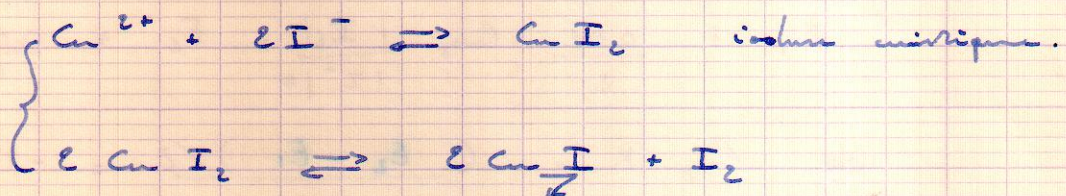 Cu²⁺ + 2I⁻ ⇌ CuI₂ iodure cuivrique.
2 CuI₂ ⇌ 2 CuI + I₂